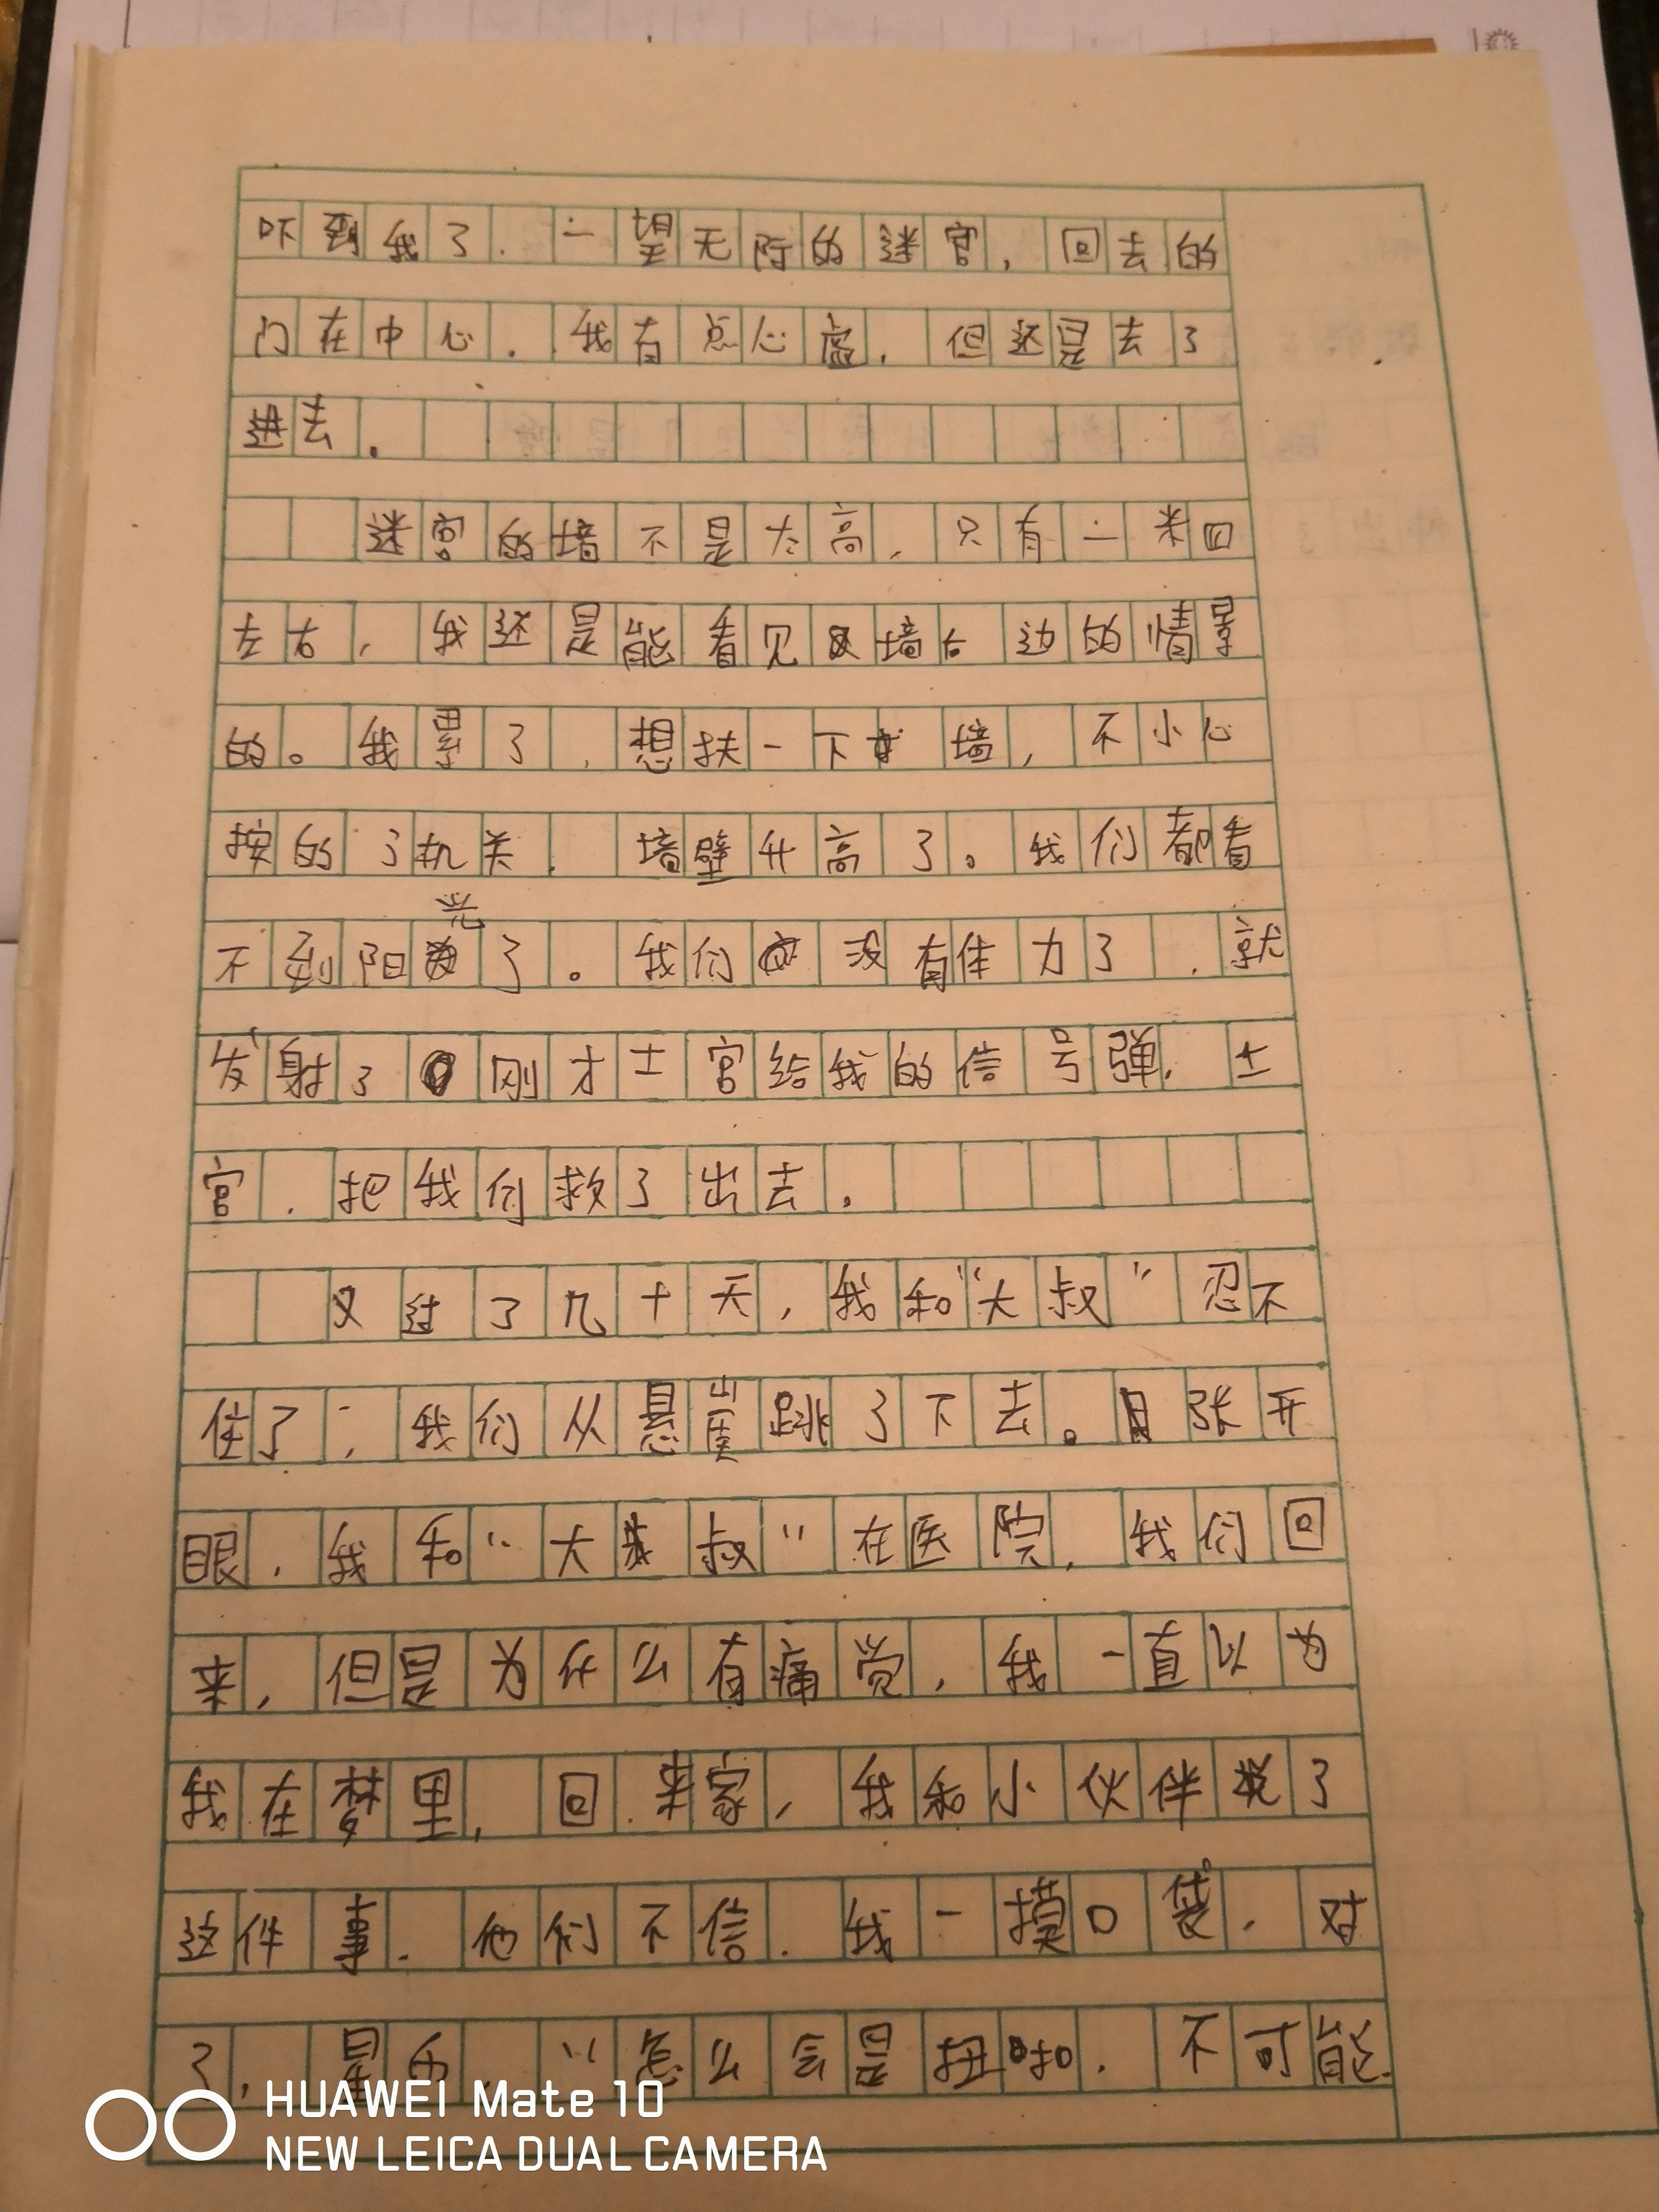 吓到我了.一望无际的迷宫,回去的
门在中心.我有点心虚,但还是去了
进去.
迷宫的墙不是太高,只有一米四
左右,我还是能看见墙后边的情景
的。我累了,想扶一下墙,不小心
按的了机关.墙壁升高了。我们都看
不到阳光了。我们没有体力了,就
发射了刚才士官给我的信号弹.士
官.把我们救了出去.
又过了几十天,我和“大叔”忍不
住了;我们从悬崖跳了下去。张开
眼.我和“大叔”在医院.我们回
来,但是为什么有痛觉,我一直以为
我在梦里.回来家,我和小伙伴说了
这件事.他们不信.我一摸口袋.对
了,星币.“怎么会是扭扣.不可能.
HUAWEI Mate 10
NEW LEICA DUAL CAMERA